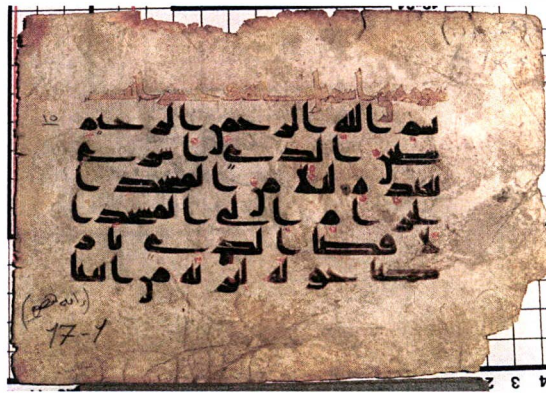 بسم الله الرحمن الرحيم
١٥
سبحن الذى اسرى
بعبده ليلا من المسجد ا
لحرام الى المسجد ا
لاقصا الذى بر
كنا حوله لنريه من ايتنا
17-1